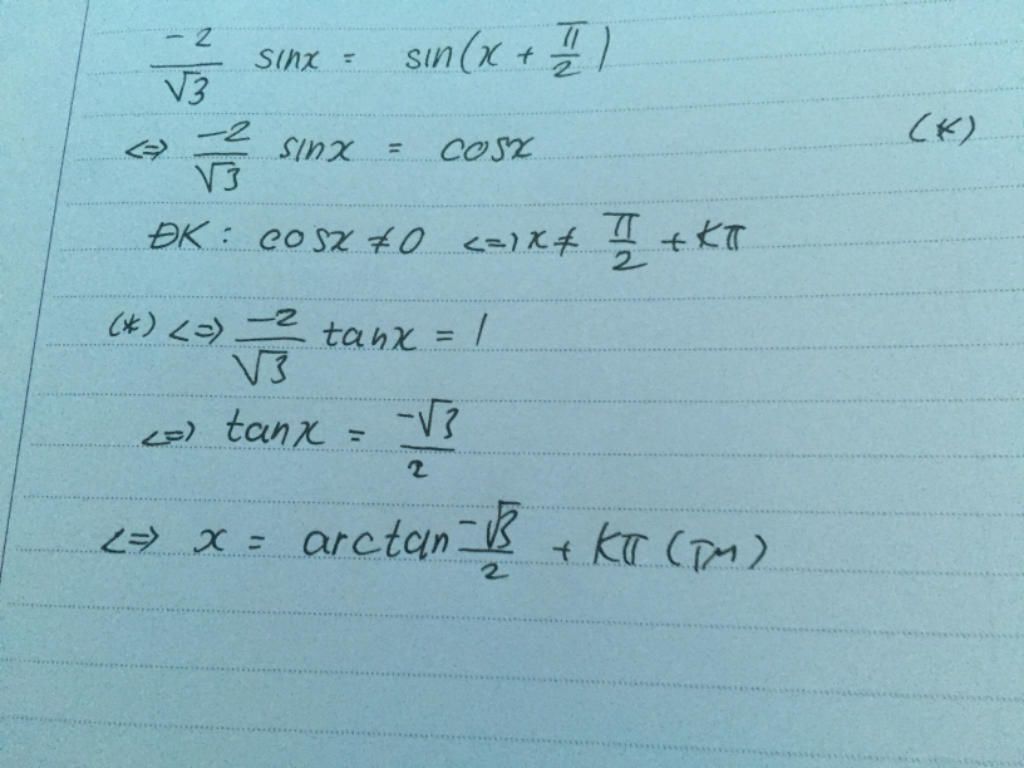 -2/√3 sinx = sin(x + π/2)
<=> -2/√3 sinx = cosx (*)
ĐK: cosx ≠ 0 <=> x ≠ π/2 + Kπ
(*) <=> -2/√3 tanx = 1
<=> tanx = -√3/2
<=> x = arctan -√3/2 + Kπ (TM)